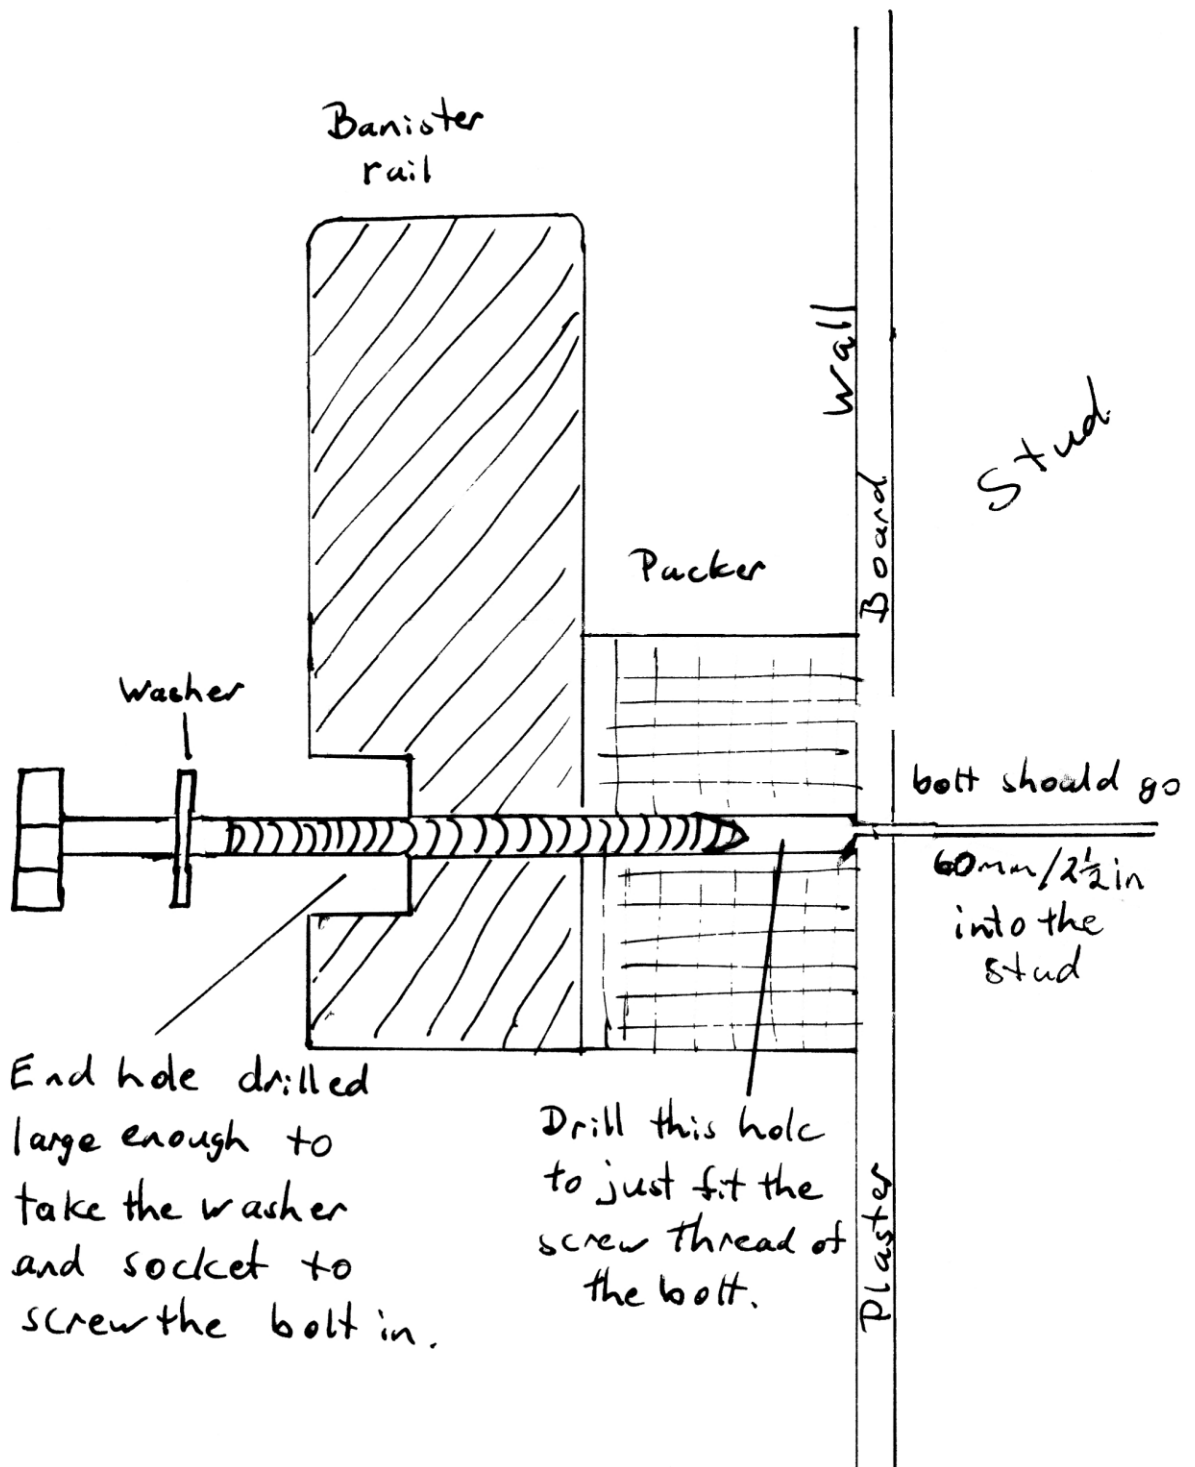 Banister
rail
Wall
Stud.
Board
Packer
Washer
bolt should go
60mm/2½in
into the
stud
End hole drilled
large enough to
take the washer
and socket to
screw the bolt in.
Drill this hole
to just fit the
screw thread of
the bolt.
Plaster